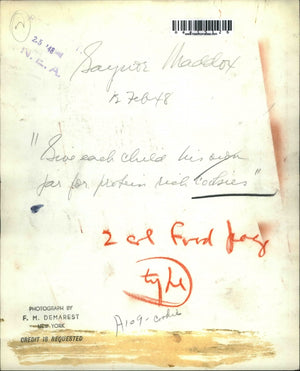 2
25 '48
N.E.A.
Gaynor Maddox
12 Feb 48
"Give each child his own
jar for protein rich cookies"
2 col Food page
style
PHOTOGRAPH BY
F. M. DEMAREST
NEW YORK
CREDIT IS REQUESTED
A109-cookies